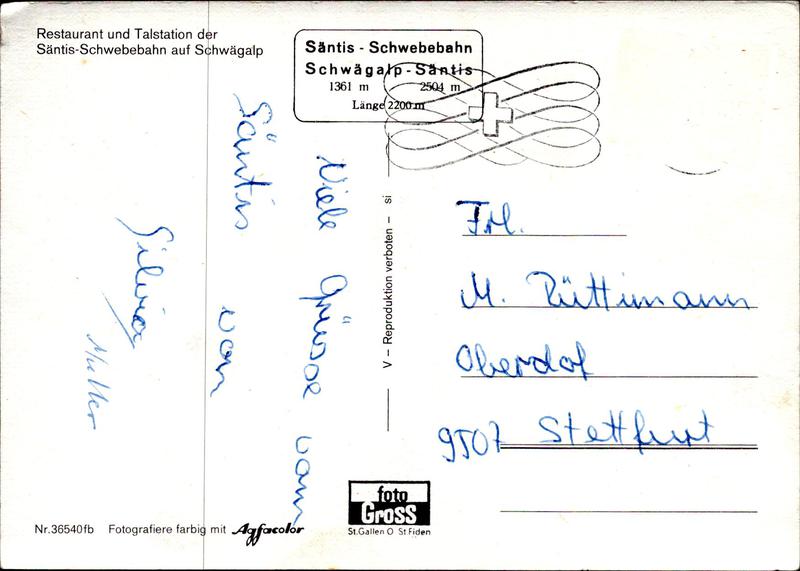 Restaurant und Talstation der
Säntis-Schwebebahn auf Schwägalp
Säntis - Schwebebahn
Schwägalp - Säntis
1361 m 2504 m
Länge 2200 m
Viele Grüsse vom
Säntis von
Silvia
Muller
V – Reproduktion verboten – si
Frl.
M. Rüttimann
Oberdof
9507 Stettfurt
foto
Gross
St.Gallen O St.Fiden
Nr.36540fb Fotografiere farbig mit Agfacolor